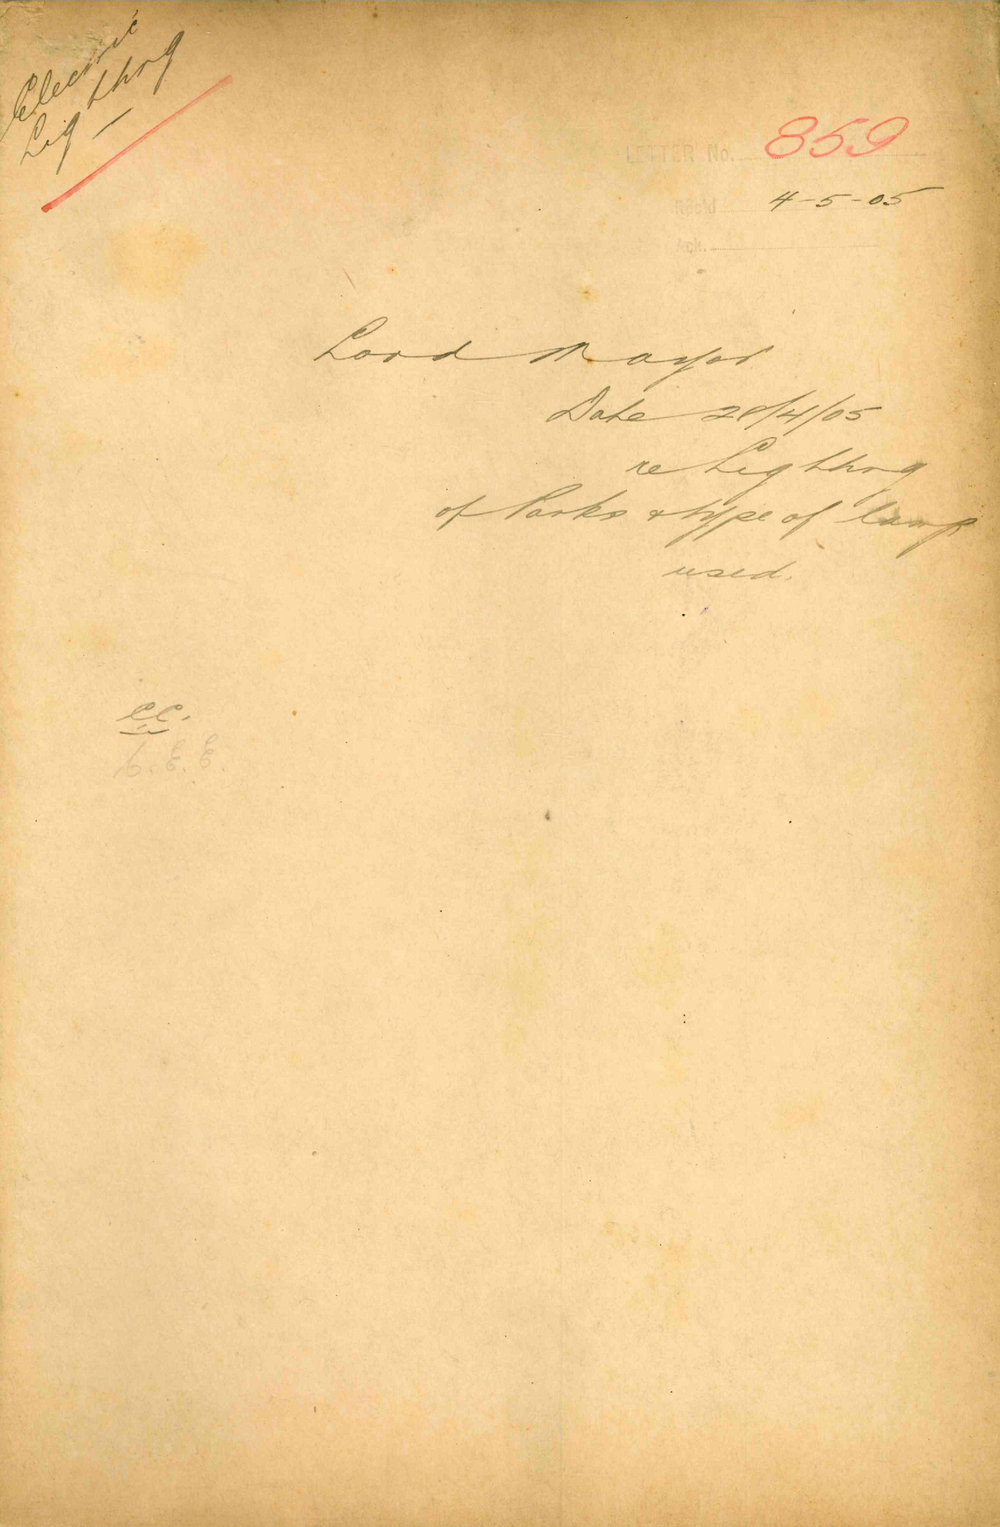 Electric
Lighting
LETTER No. 859
Rec'd 4-5-05
Ack.
Lord Mayor
Date 28/4/05
re Lighting
of Parks & type of lamp
used.
CC.
C.E.E.